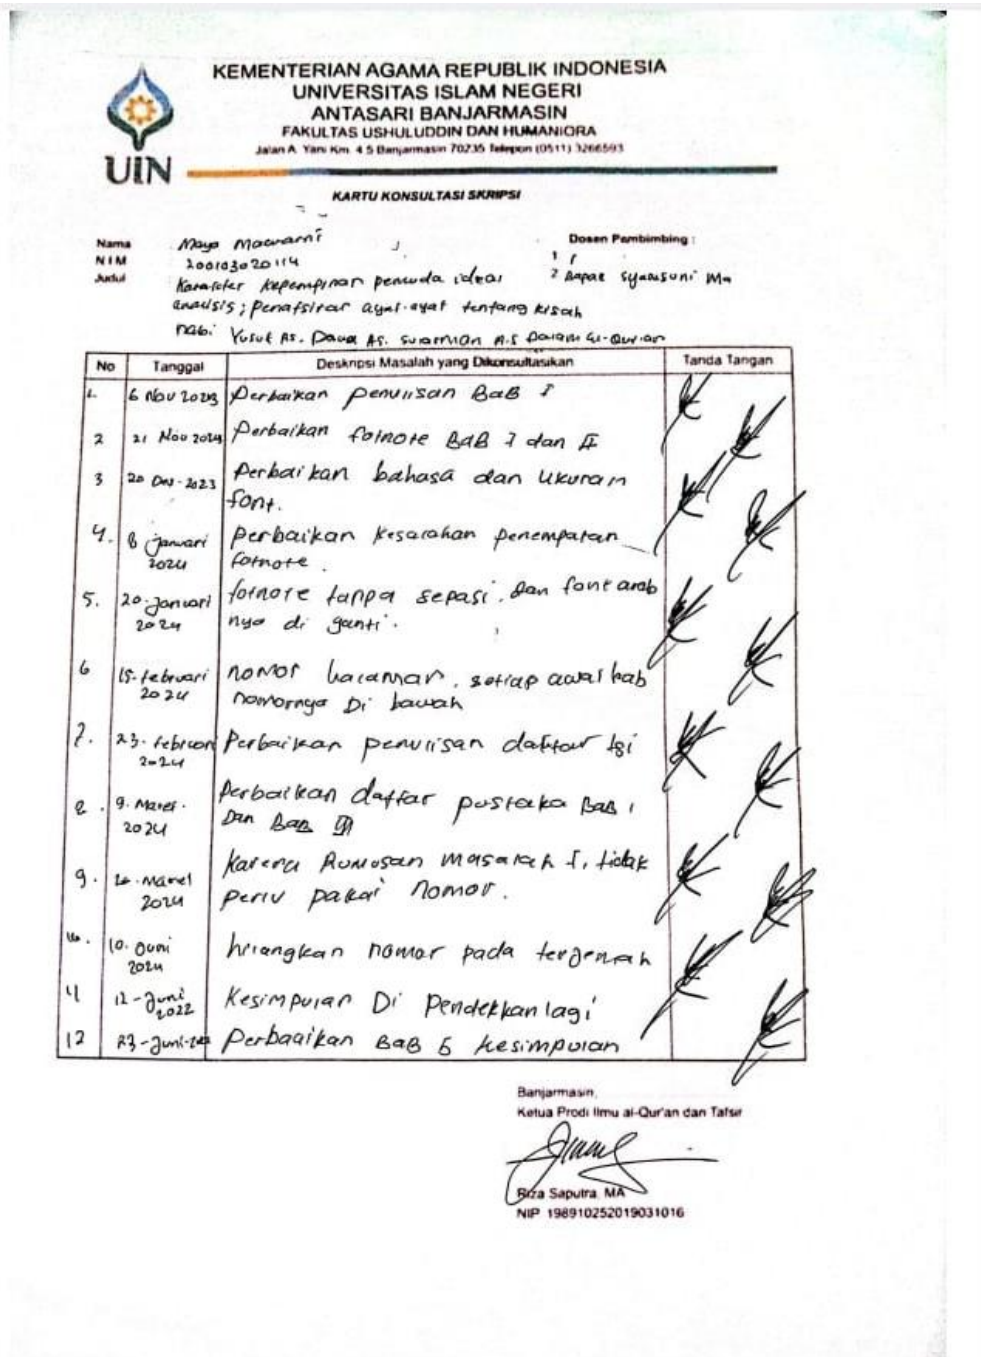 KEMENTERIAN AGAMA REPUBLIK INDONESIA
UNIVERSITAS ISLAM NEGERI
ANTASARI BANJARMASIN
FAKULTAS USHULUDDIN DAN HUMANIORA
Jalan A. Yani Km. 4.5 Banjarmasin 70235 Telepon (0511) 3266593
UIN
KARTU KONSULTASI SKRIPSI
Nama Maya Mawarni
NIM 200103020114
Judul Karakter kepempinan pemuda ideal
analisis; Penafsiran ayat-ayat tentang kisah
nabi Yusuf As. Daud As. Sulaiman A.S Dalam Al-Qur'an
Dosen Pembimbing :
1
2 Bapak Syamsuni Ma
No Tanggal Deskripsi Masalah yang Dikonsultasikan Tanda Tangan
1. 6 Nov 2023 Perbaikan penulisan BaB I
2 21 Nov 2024 Perbaikan fotnote BaB I dan II
3 20 Des-2023 Perbaikan bahasa dan Ukuran
font.
4. 8 Januari
2024
Perbaikan Kesalahan penempatan
fotnote.
5. 20-Januari
2024
fotnote tanpa sepasi. dan font arab
nya di ganti.
6 15-februari
2024
nomor halaman. setiap awal bab
nomornya Di bawah
7. 23-februari
2024
Perbaikan penulisan daftar Isi
8. 9-Maret-
2024
Perbaikan daftar pustaka BaB I
Dan BaB
9. Maret
2024
Karena Rumusan Masalah I, tidak
perlu pakai nomor.
10. 10-Juni
2024
hilangkan nomor pada terjemah
11 12-Juni
2022
Kesimpulan Di Pendekkan lagi
12 23-Juni- Perbaaikan BaB 5 Kesimpulan
Banjarmasin,
Ketua Prodi Ilmu al-Qur'an dan Tafsir
Riza Saputra, MA
NIP 198910252019031016